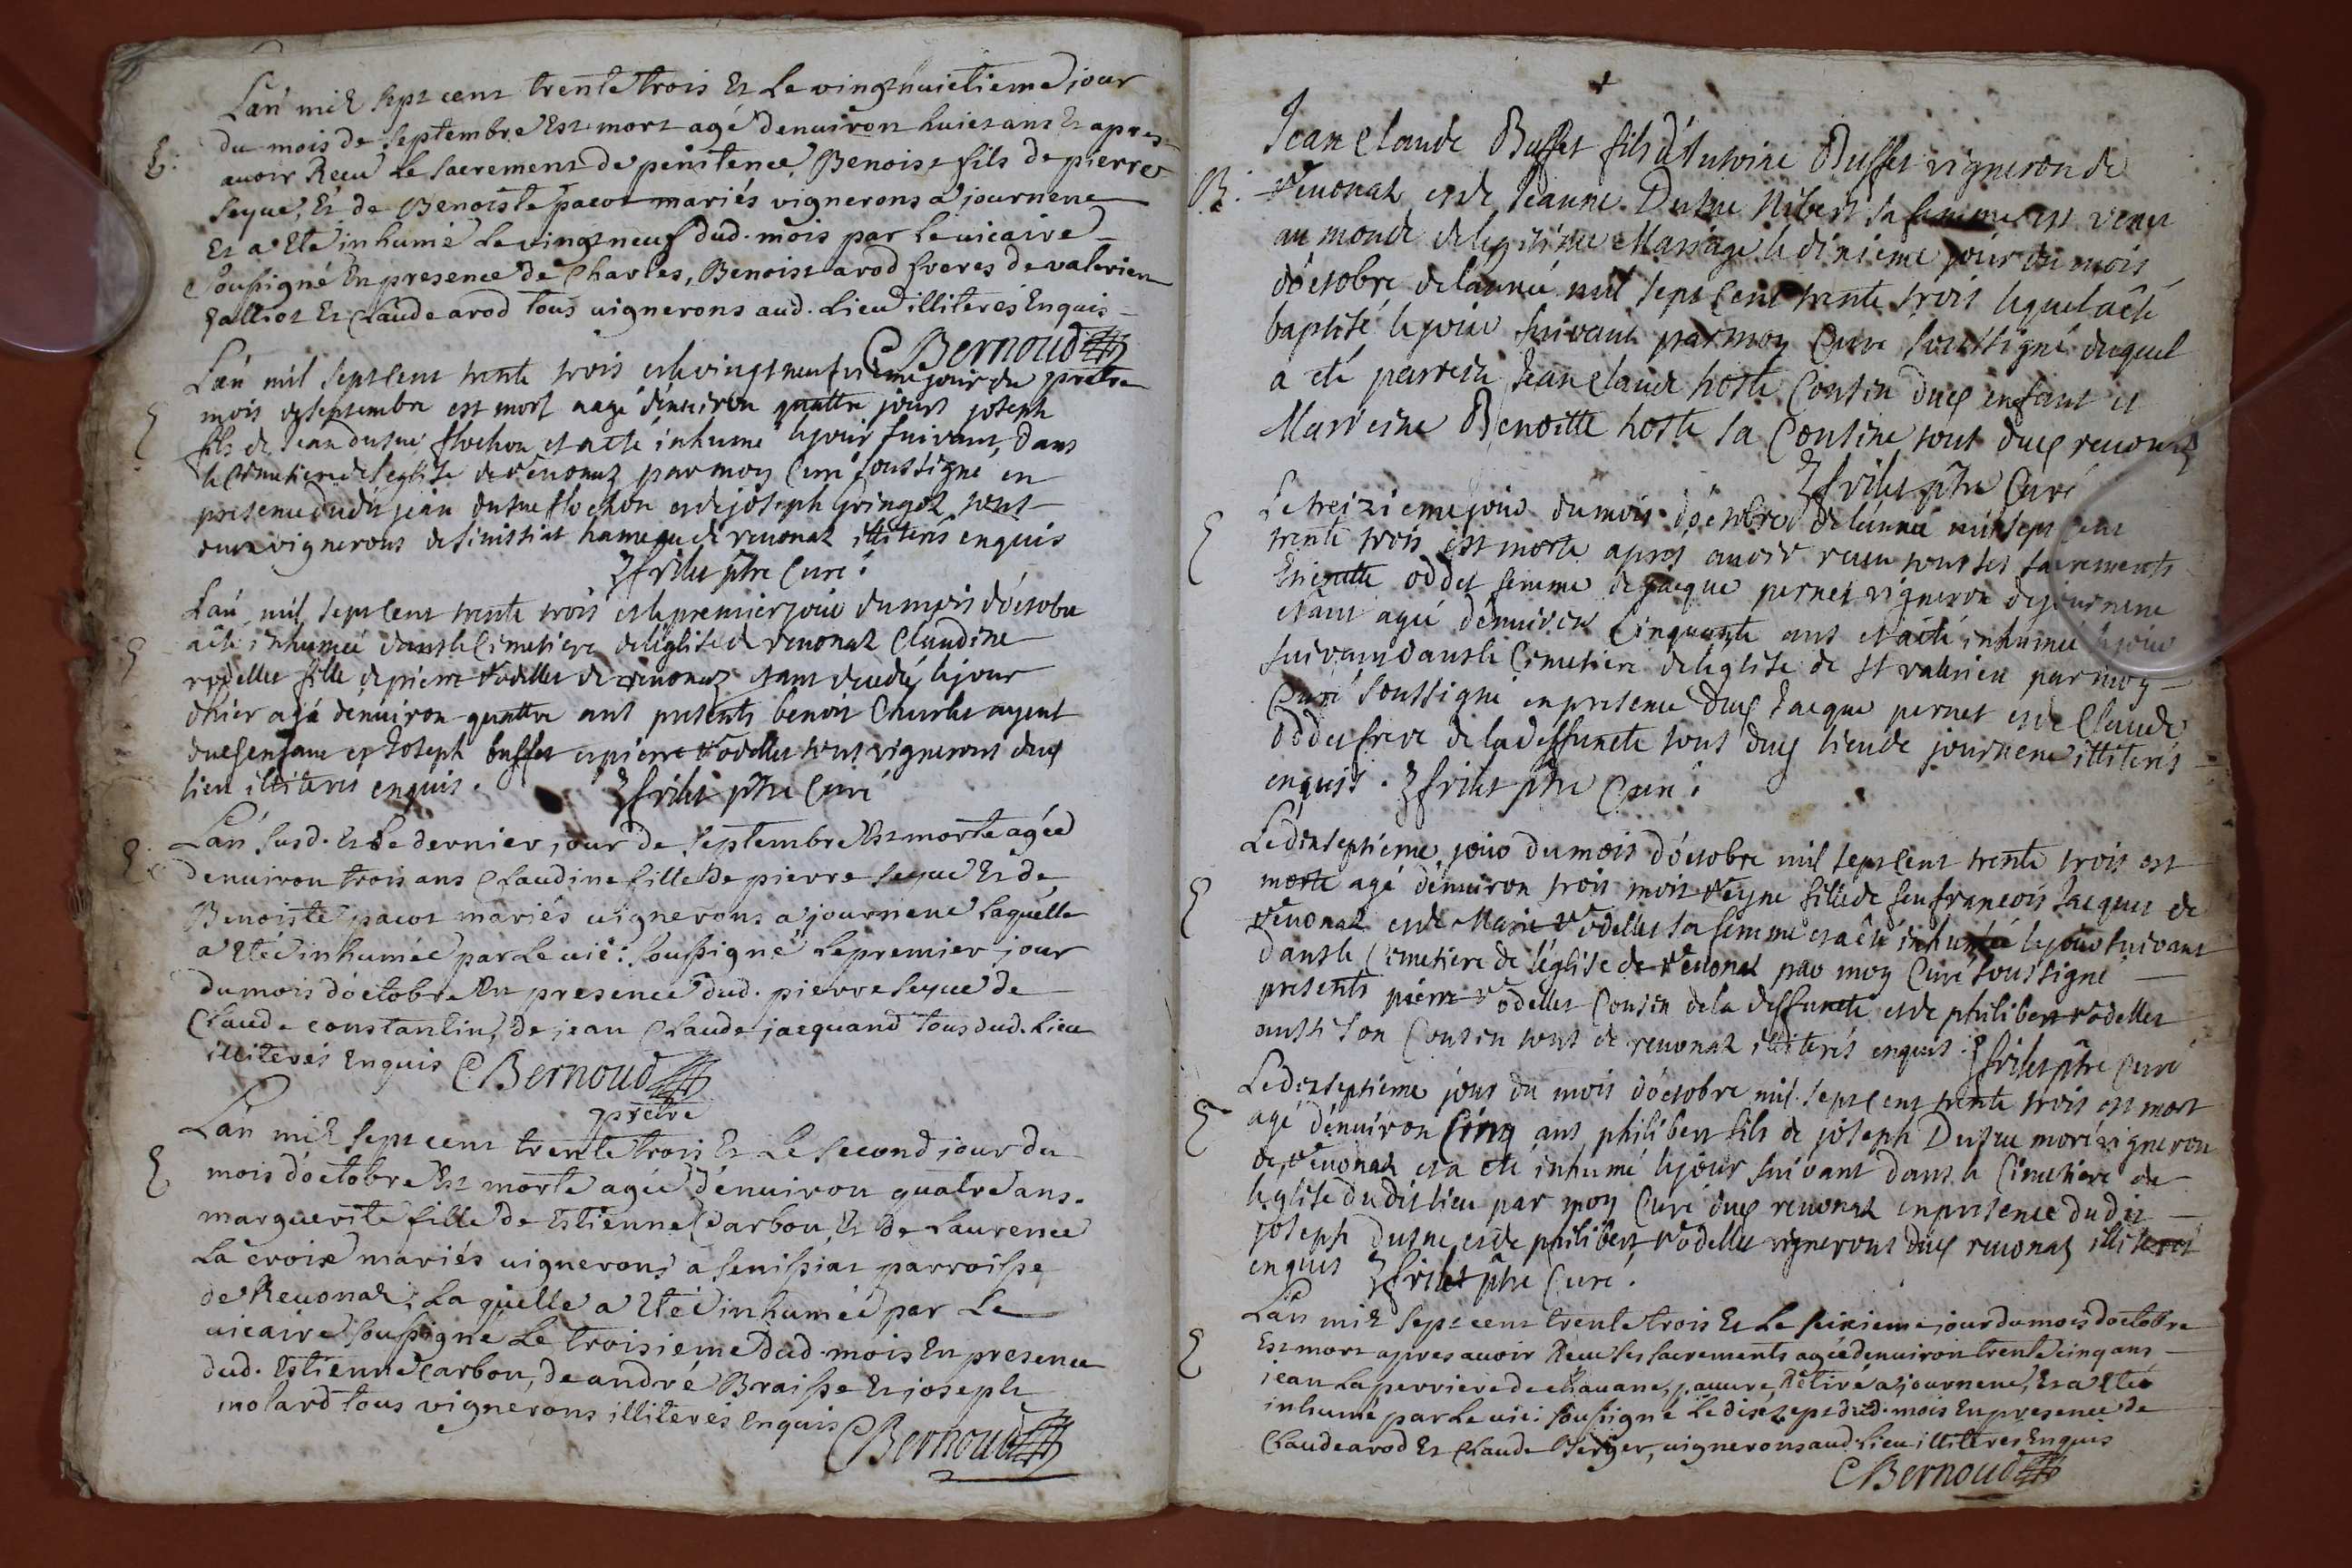 Lan mil sept cent trente trois Et Le vingthuictieme jour
du mois de Septembre Est mort agé denuiron huict ans Et apres
E:
auoir Receu Le sacrement de penitence, Benoist fils de pierre
Seyue, Et de Benoiste pacot mariés vignerons a journene
Et a Eté inhumé Le vingt neuf dud. mois par Le uicaire
soussigné En presence de Charles, Benoist arod freres de valerien
galliot Et Claude arod tous uignerons aud. Lieu illiterés Enquis
C Bernoud
prêtre
Lan mil sept cent trente trois et le vingt neufviemejour du
mois de septembre est mort aagé dénuiron quattre jours joseph
fils de Jean dutruc flochon et a eté inhumé le jour suivant, dans
le cimetiere de l'eglise de reuonaz par moy Curé soussigné en
presence dudit jean dutruc flochon et de joseph gringoz tous
deux vignerons de senissiat hameau de reuonaz illiterés enquis
frilet ptre Curé
Lan mil sept cent trente trois et le premier jour du mois d'octobre
a eté inhumée dans le Cimetiere de l'église de reuonaz Claudine
rodellet fille de pierre rodellet de reuonaz etant decedé le jour
d'hier agé denuiron quattre ans presents benoit Charles
dud enfant et Joseph buffet et pierre rodellet tous vignerons dud
lieu illiterés enquis. frilet ptre Curé
Lan susd. Et Le dernier jour de septembre Est morte agée
E
denuiron trois ans Claudine fille de pierre seyue Et de
Benoiste pacot mariés uignerons a journene Laquelle
a Etée inhumée par Le uic: soussigné Le premier jour
du mois d'octobre En presence dud. pierre seyue de
Claude constantin, de jean Claude jacquand tous dud. Lieu
illiterés Enquis C Bernoud
prêtre
Lan mil sept cent trente trois Et Le second jour du
E
mois d'octobre Est morte agée dénuiron quatre ans
marguerite fille de Estienne Carbon, Et de Laurence
La croix mariés uignerons a senissiat parroisse
de Reuonaz, Laquelle a Etée inhumée par Le
uicaire soussigné Le troisieme dud. mois En presence
dud. Estienne carbon, de andré Braisse Et joseph
molard tous vignerons illiterés Enquis
C Bernoud
Jean Claude Buffet fils d'Antoine Buffet vigneron de
B.
reuonaz et de Jeanne Dutruc Nibert sa femme est venu
au monde de legitime Mariage le dixieme jour du mois
d'octobre de l'année mil sept cent trente trois lequel a eté
baptisé le jour suivant par moy Curé soussigné duquel
a eté parrein Jean Claude hoste Cousin dud enfant et
Marreine Benoitte hoste sa Cousine tous dud reuonaz
frilet ptre Curé
Le treizieme jour du mois d'octobre de l'année mil sept cent
trente trois est morte apres auoir receu tous ses sacrements
oddet femme de jaque pernet vigneron de journene
etant agée denuiron Cinquante ans et a eté inhumée le jour
suivant dans le Cimetiere de l'eglise de st valerien par moy
Curé soussigné en presence dud Jaque pernet et de Claude
oddet frere de la deffuncte tous dud lieu de journene illiterés
enquis. frilet ptre Curé
Le dixseptieme jour du mois d'octobre mil sept cent trente trois est
morte agé dénuiron trois mois reyne fille de feu francois Jacques de
reuonaz et de Marie rodellet sa femme et a eté inhumée le jour suivant
dans le Cimetiere de l'église de reuonaz par moy Curé soussigné
presents pierre rodellet Cousin de la deffuncte et de philibert rodellet
aussi son Cousin tous de reuonaz illiterés enquis. frilet ptre Curé
Le dixseptieme jour du mois d'octobre mil sept cent trente trois est mort
agé dénuiron Cinq ans philibert fils de joseph Dutruc moré vigneron
de reuonaz et a eté inhumé le jour suivant dans le Cimetiere de
leglise dudit lieu par moy Curé dud reuonaz en presence dudit
joseph dutruc et de philibert rodellet vignerons dud reuonaz illiterés
enquis frilet ptre Curé.
Lan mil sept cent trente trois Et Le seixieme jour du mois d'octobre
Est mort apres auoir Receu ses sacrements agée denuiron trente cinq ans
jean La perriere de chauane, pauure, Retiré a journene, Et a Eté
inhumé par Le uic: soussigné Le dix sept dud. mois En presence de
Claude arod Et Claude Berger, uignerons aud. Lieu illiterés Enquis
C Bernoud